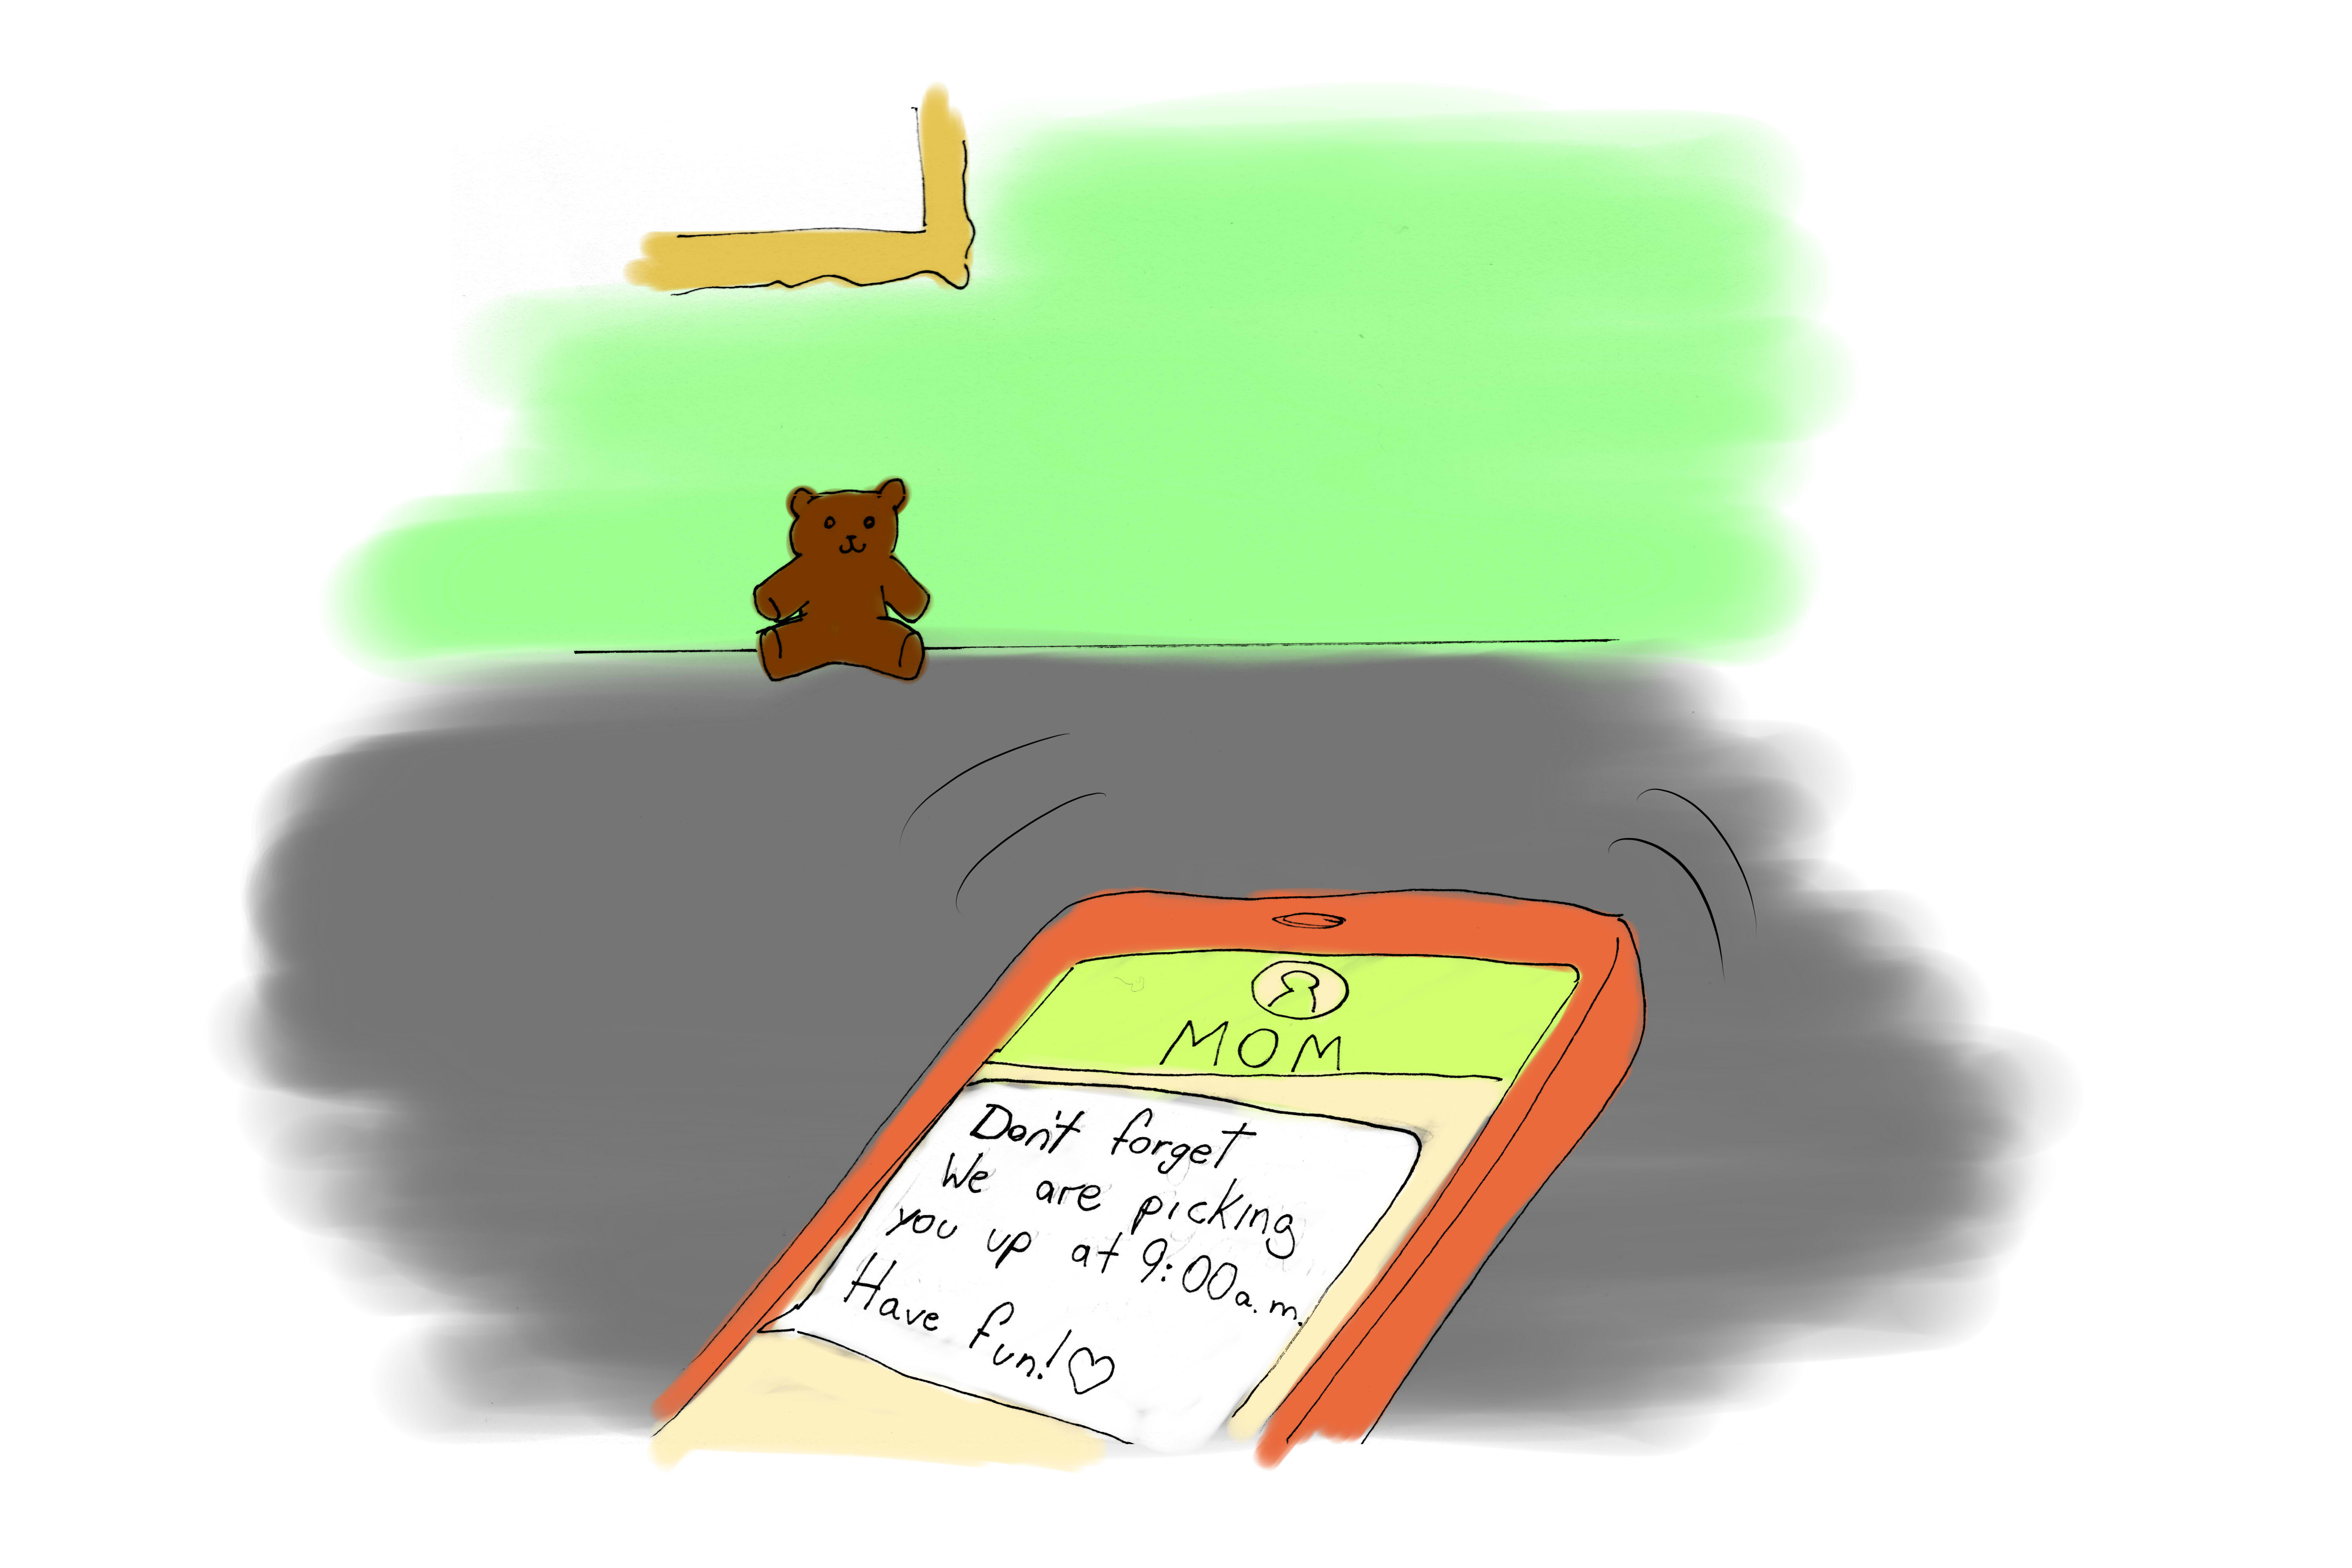 MOM
Don't forget
We are picking
you up at 9:00a.m.
Have fun!♡